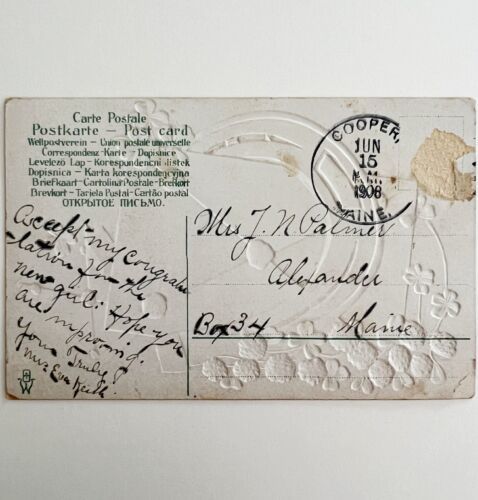 Carte Postale
Postkarte — Post card
Weltpostverein — Union postale universelle
Correspondenz-Karte — Dopisnice
Levelező Lap — Korespondenční lístek
Dopisnica — Karta korespondencyjna
Briefkaart — Cartolina Postale — Brefkort
Brevkort — Tarjeta Postal — Cartão postal
ОТКРЫТОЕ ПИСЬМО.
COOPER,
JUN
15
A.M.
1908
MAINE.
Accept my congratu
lation for the
new girl. Hope you
are improving
Yours Truly
Mrs Eva
Mrs J. N. Palmer
Alexander
Box 34 Maine
W